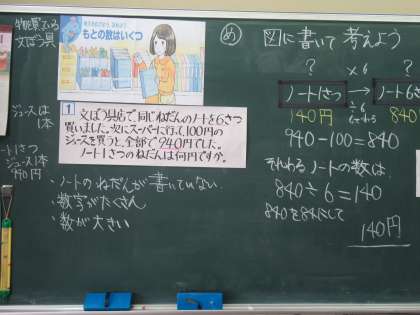 物が買える
文ぼう具
ジュースは
1本
ジュース1本
940円
もとの数はいくつ
1
文ぼう具店で同じねだんのノートを6さつ
買いました。次にスーパーに行って100円の
ジュースを買うと、全部で940円でした。
ノート1さつのねだんは何円ですか。
・ノートのねだんが書いていない
・数字がたくさん
・数が大きい
め 図に書いて考えよう
? ×6 ?
ノート1さつ → ノート6さ
140円 ÷6 840
940-100=840
ノートの数は
840÷6=140
840を84にして
140円